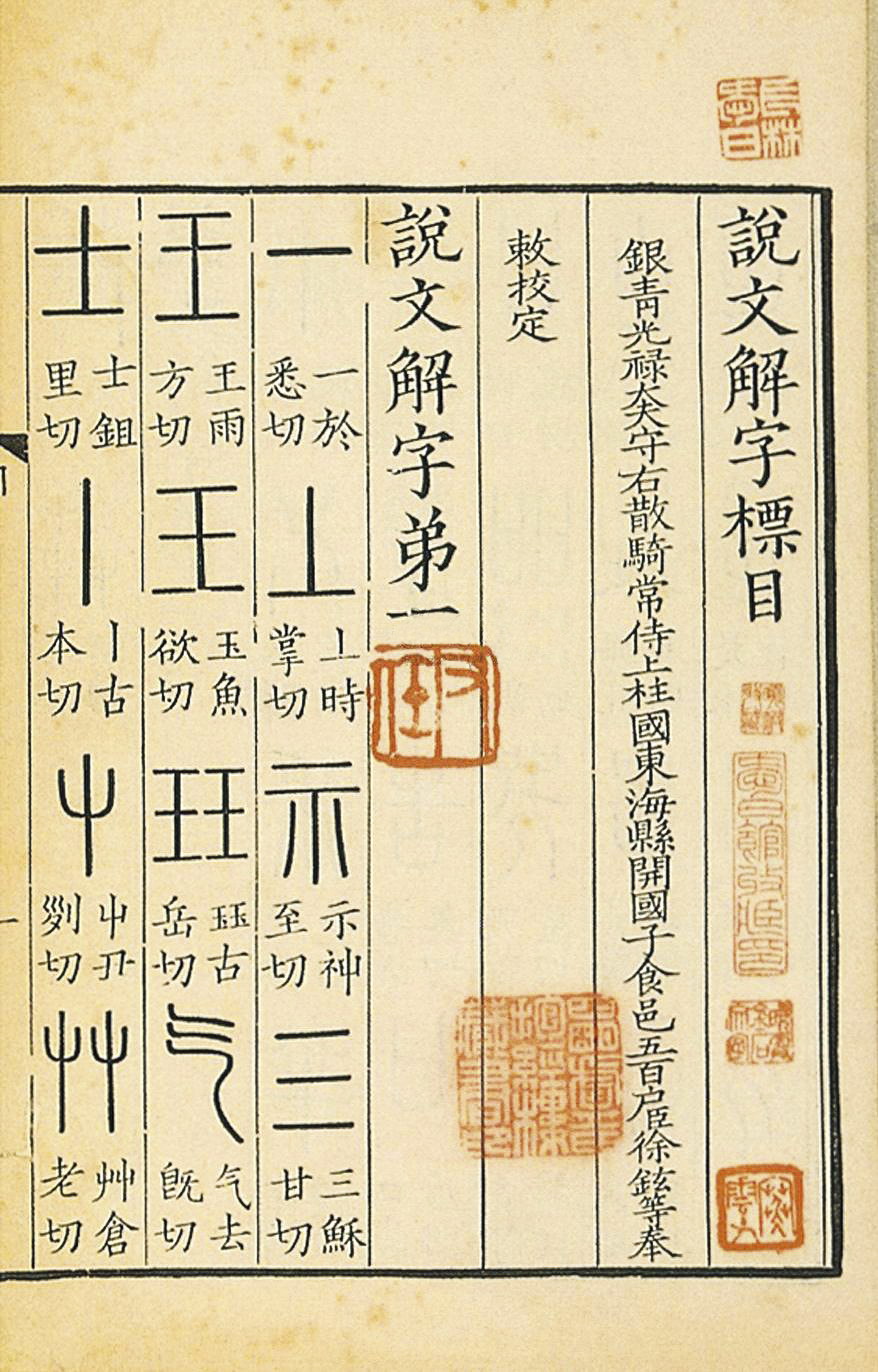 說文解字標目
銀青光祿大夫守右散騎常侍上柱國東海縣開國子食邑五百戶臣徐鉉等奉
敕校定
說文解字弟一
一 一於悉切 丄 丄時掌切 示 示神至切 三 三穌甘切
王 王雨方切 玉 玉魚欲切 玨 玨古岳切 气 气去旣切
士 士鉏里切 丨 丨古本切 屮 屮丑列切 艸 艸倉老切